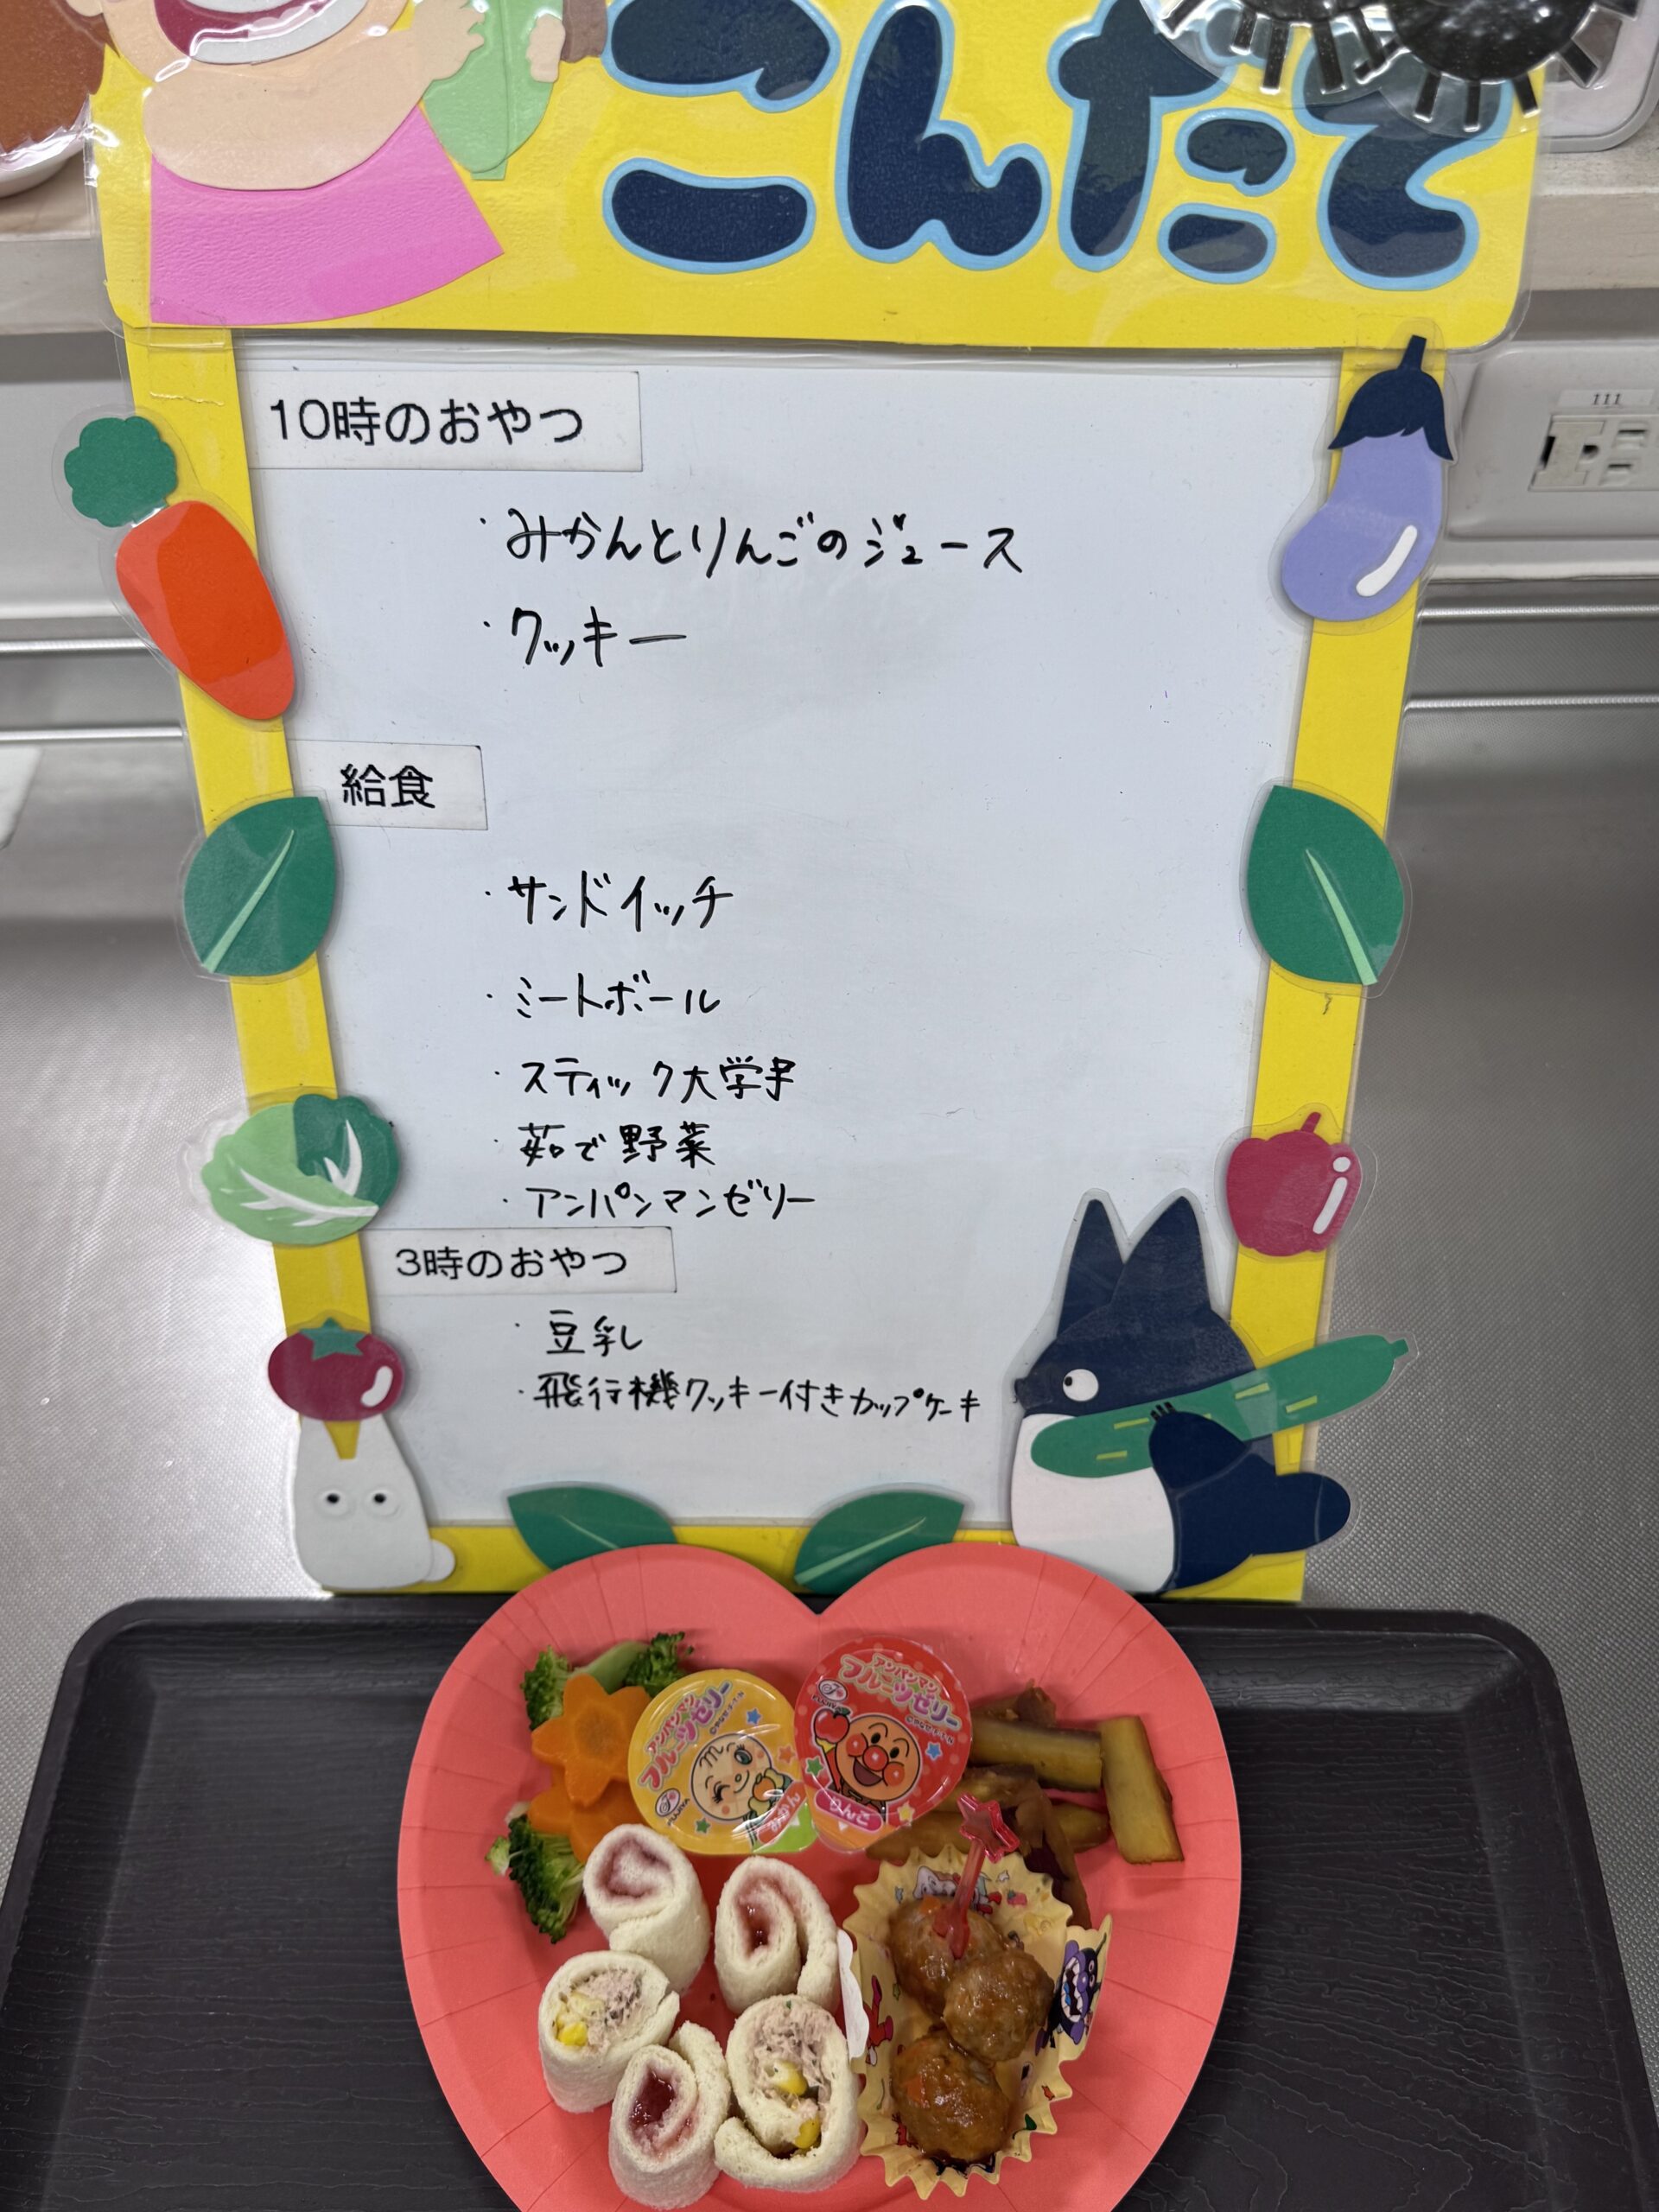 こんだて
111
10時のおやつ
・みかんとりんごのジュース
・クッキー
給食
・サンドイッチ
・ミートボール
・スティック大学芋
・茹で野菜
・アンパンマンゼリー
3時のおやつ
・豆乳
・飛行機クッキー付きカップケーキ
アンパンマン
フルーツゼリー
FUJIYA
みかん
アンパンマン
フルーツゼリー
りんご